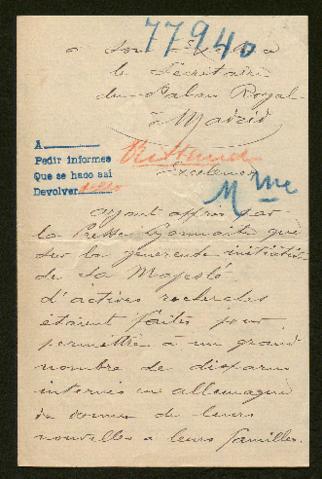 77940
a Son
le Secrétaire
du Palais Royal
à Madrid
A
Pedir informes
Que se haco saí
Devolver
Excelence
Mme
ayant appris par
la Presse Lyonnaise que
sur la généreuse initiative
de Sa Majesté
d'actives recherches
étaient faites pour
permettre à un grand
nombre de disparus
internés en allemagne
de donner de leurs
nouvelles a leurs familles.